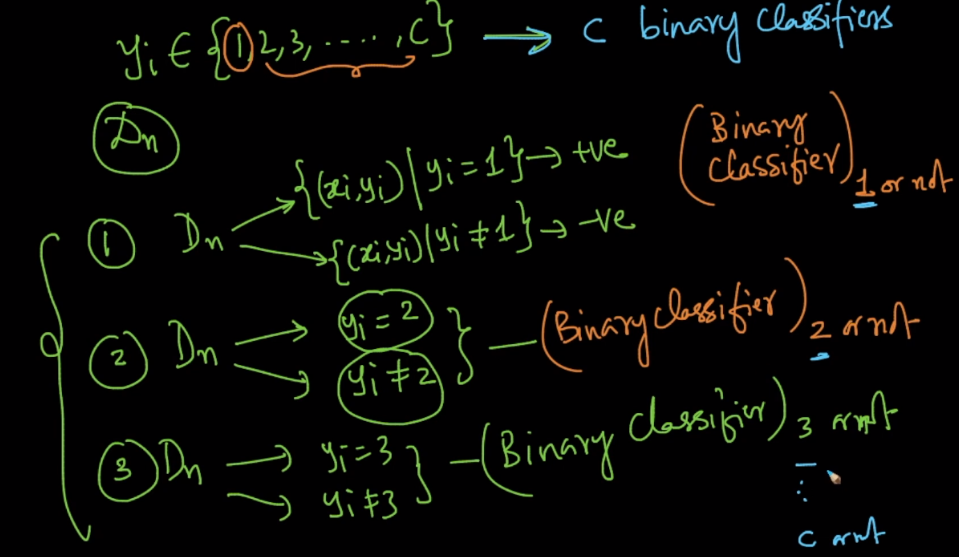 yi ∈ {1, 2, 3, ....., C} → C binary classifiers
Dn
① Dn → {(xi, yi) | yi = 1} → +ve
→ {(xi, yi) | yi ≠ 1} → -ve
(Binary Classifier) 1 or not
② Dn → yi = 2
→ yi ≠ 2
} — (Binary classifier) 2 or not
③ Dn → yi = 3
→ yi ≠ 3
} — (Binary Classifier) 3 or not
:
C or not